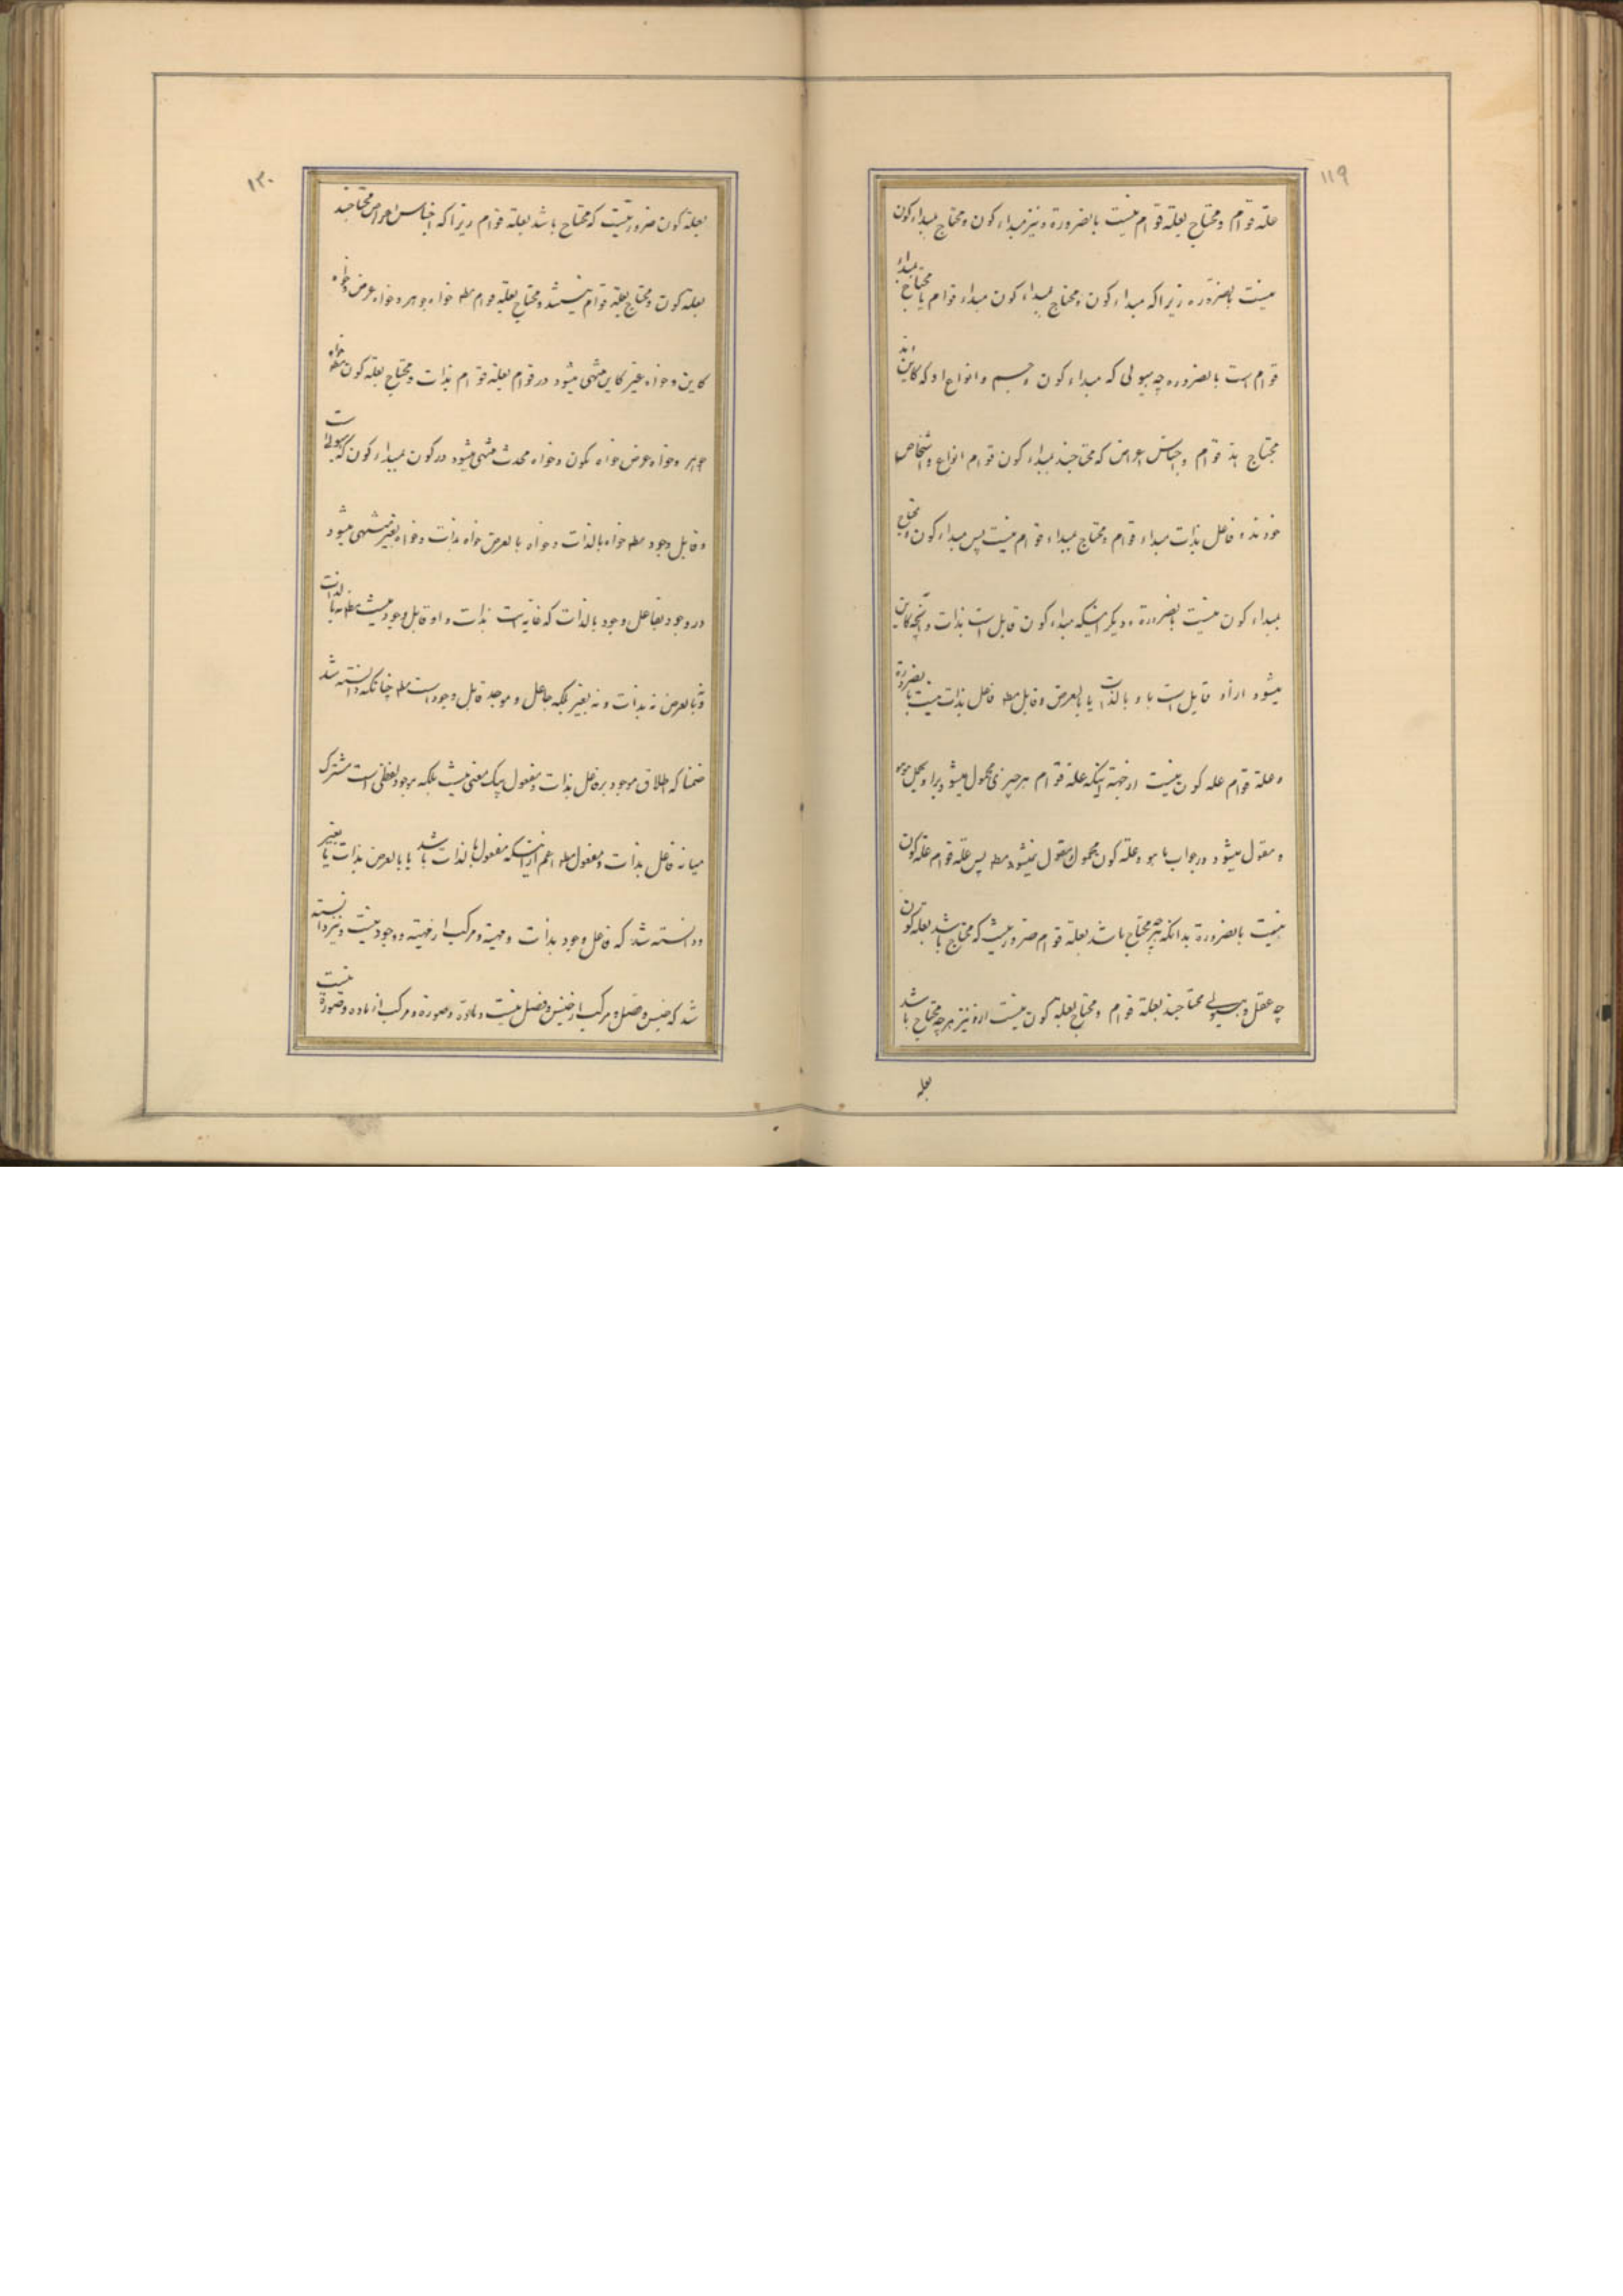 ۱۱۹
علة قوام و محتاج بعلة قوام نیست بالضرورة و نیز مبداء کون و محتاج بمبداء کون
نیست بالضرورة زیرا که مبداء کون و محتاج بمبداء کون مبداء قوام یا محتاج بمبداء
قوام است بالضروره چه هیولی که مبداء کون و جسم و انواع او که کاین اند
محتاج بذ قوام و اجناس اعراض که محتاجند بمبداء کون قوام انواع و اشخاص
خودند و فاعل بذات مبداء قوام و محتاج بمبداء قوام نیست پس مبداء کون و محتاج
بمبداء کون نیست بالضرورة و دیگر اینکه مبداء کون قابل است بذات و آنچه کاین
میشود از او قابل است با و بالذات یا بالعرض و قابل مطه فاعل بذات نیست بالضرورة
و علة قوام علة کون نیست از جهة اینکه علة قوام هر چیزی محمول میشود براو بحمل هو هو
و مقول میشود در جواب ما هو و علة کون محمول و مقول نمیشود مطه پس علة قوام علة کون
نیست بالضرورة بدانکه هرچه محتاج باشد بعلة قوام ضرور نیست که محتاج باشد بعلة کون
چه عقل و هیولی محتاجند بعلة قوام و محتاج بعلة کون نیستند و نیز هرچه محتاج باشد
بعله
۱۲۰
بعلة کون ضرور نیست که محتاج باشد بعلة قوام زیرا که اجناس اعراض محتاجند
بعلة کون و محتاج بعلة قوام نیستند و محتاج بعلة قوام مطه خواه جوهر و خواه عرض و خواه
کاین و خواه غیر کاین منتهی میشود در قوام بعلة قوام بذات و محتاج بعلة کون مطه خواه
جوهر و خواه عرض خواه مکون و خواه محدث منتهی میشود در کون بمبداء کون که هیولی است
و قابل وجود مطه خواه بالذات و خواه بالعرض خواه بذات و خواه بغیر منتهی میشود
در وجود بفاعل وجود بالذات که غایة است بذات و او قابل وجود نیست مطه نه بالذات
و نه بالعرض نه بذات و نه بغیر بلکه جاعل و موجد قابل وجود است مطه چنانکه دانسته شد
ضمنا که اطلاق موجود بر فاعل بذات و مفعول بیک معنی نیست بلکه موجود لفظی است مشترک
میانه فاعل بذات و مفعول مطه اعم از اینکه مفعول بالذات باشد یا بالعرض بذات یا بغیر
و دانسته شد که فاعل وجود بذات و مهیة و مرکب از مهیة و وجود نیست و نیز دانسته
شد که جنس و فصل و مرکب از جنس و فصل نیست و ماده و صورة و مرکب از ماده و صورة نیست